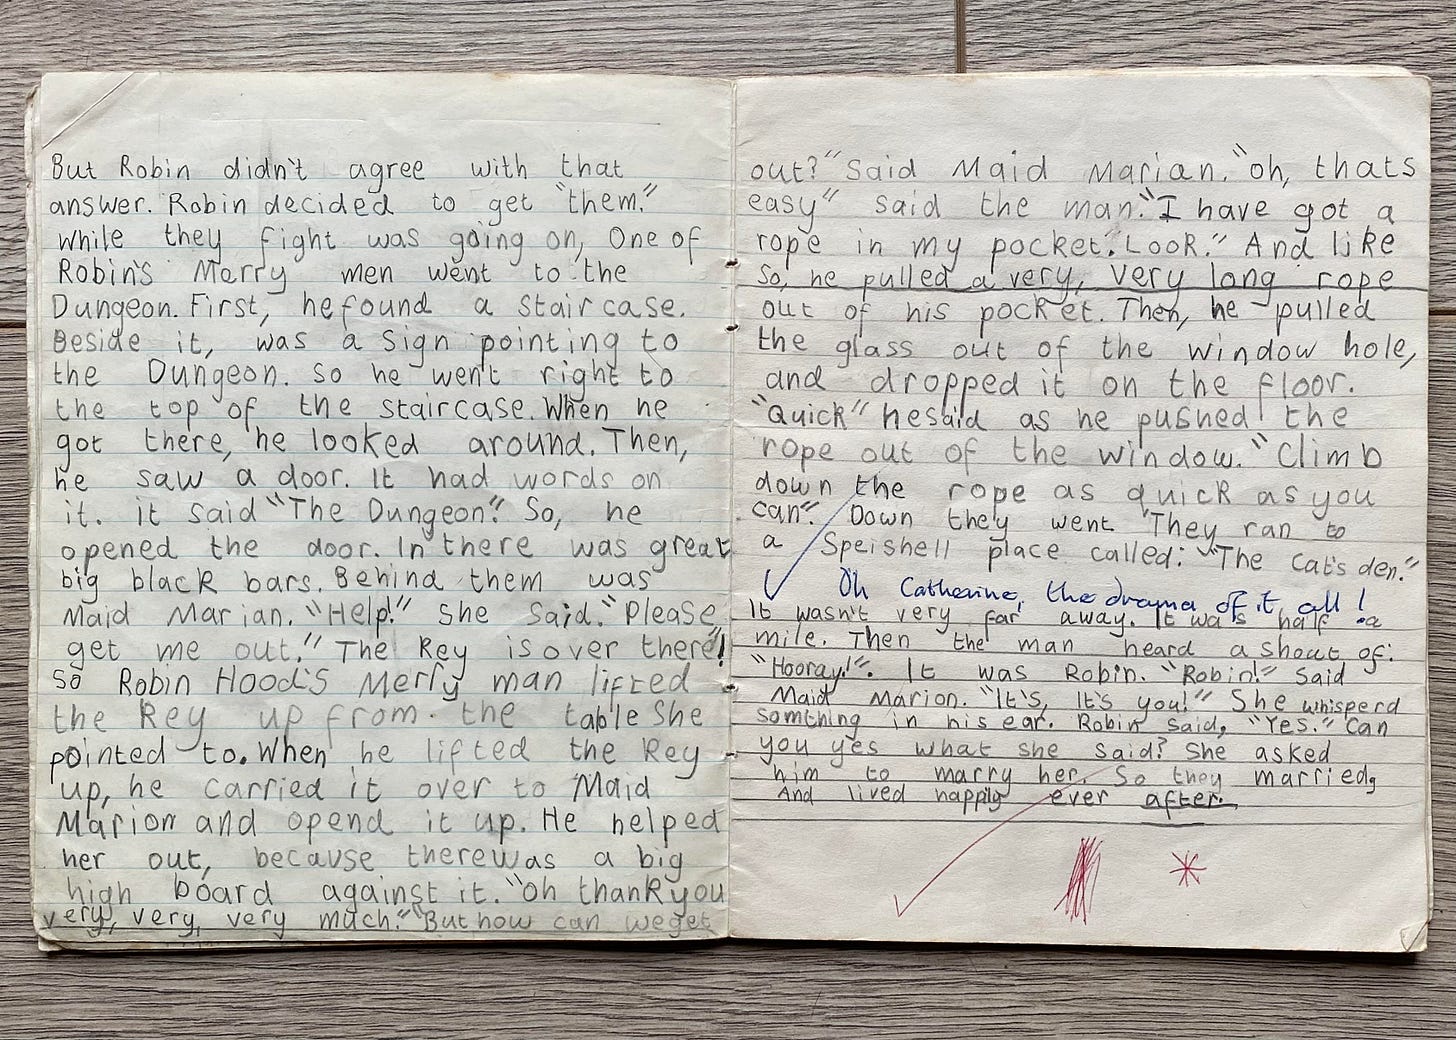 But Robin didn't agree with that
answer. Robin decided to get "them."
While they fight was going on, One of
Robin's Merry men went to the
Dungeon. First, he found a staircase.
Beside it, was a Sign pointing to
the Dungeon. So he went right to
the top of the staircase. When he
got there, he looked around. Then,
he saw a door. It had words on
it. it said "The Dungeon." So, he
opened the door. In there was great
big black bars. Behind them was
Maid Marian. "Help!" She Said. "Please,
get me out." "The Key is over there"!
So Robin Hood's Merry man lifted
the Key up from the table She
pointed to. When he lifted the Key
up, he carried it over to Maid
Marion and opend it up. He helped
her out, because there was a big
high board against it. "Oh thank you
very, very, very much." "But how can we get
out?" Said Maid Marian. "Oh, thats
easy" said the man. "I have got a
rope in my pocket. Look." And like
So, he pulled a very, very long rope
out of his pocket. Then, he pulled
the glass out of the window hole,
and dropped it on the floor.
"Quick" he said as he pushed the
rope out of the window. "Climb
down the rope as quick as you
can". Down they went. They ran to
a Speishell place called: "The Cat's den."
Oh Catherine, the drama of it all!
It wasn't very far away. It was half a
mile. Then the man heard a shout of:
"Hooray!". It was Robin. "Robin!" Said
Maid Marion. "It's, It's you!" She whisperd
somthing in his ear. Robin said, "Yes." Can
you yes what she said? She asked
him to marry her. So they married,
And lived happily ever after.